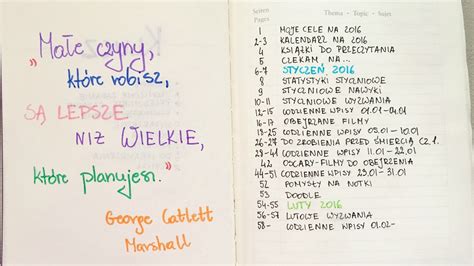 „Małe czyny,
które robisz,
SĄ LEPSZE
NIŻ WIELKIE,
które planujesz."
George Catlett
Marshall
Seiten Thema - Topic - Sujet
Pages
1 MOJE CELE NA 2016
2-3 KALENDARZ NA 2016
4 KSIĄŻKI DO PRZECZYTANIA
5 CZEKAM NA...
6-7 STYCZEŃ 2016
8 STATYSTYKI STYCZNIOWE
9 STYCZNIOWE NAWYKI
10-11 STYCZNIOWE WYZWANIA
12-15 CODZIENNE WPISY 01.01-04.01
16-17 OBEJRZANE FILMY
18-25 CODZIENNE WPISY 05.01-10.01
26-27 DO ZROBIENIA PRZED ŚMIERCIĄ CZ.1.
28-41 CODZIENNE WPISY 11.01-22.01
42 OSCARY-FILMY DO OBEJRZENIA
44-51 CODZIENNE WPISY 23.01-31.01
52 POMYSŁY NA NOTKI
53 DOODLE
54-55 LUTY 2016
56-57 LUTOWE WYZWANIA
58- CODZIENNE WPISY 01.02-